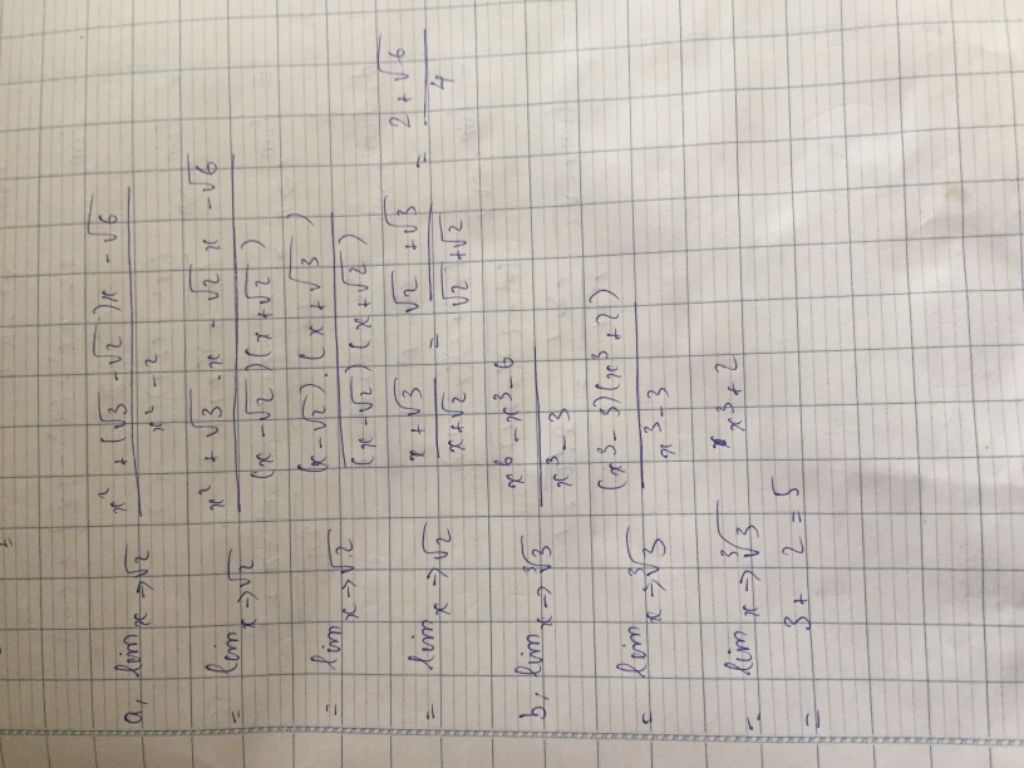 a, lim x→√2 (x² + (√3 - √2)x - √6) / (x² - 2)
= lim x→√2 (x² + √3 . x - √2 x - √6) / ((x - √2)(x + √2))
= lim x→√2 ((x - √2) . (x + √3)) / ((x - √2)(x + √2))
= lim x→√2 (x + √3) / (x + √2) = (√2 + √3) / (√2 + √2) = (2 + √6) / 4
b, lim x→∛3 (x⁶ - x³ - 6) / (x³ - 3)
= lim x→∛3 ((x³ - 3)(x³ + 2)) / (x³ - 3)
= lim x→∛3 x³ + 2
= 3 + 2 = 5